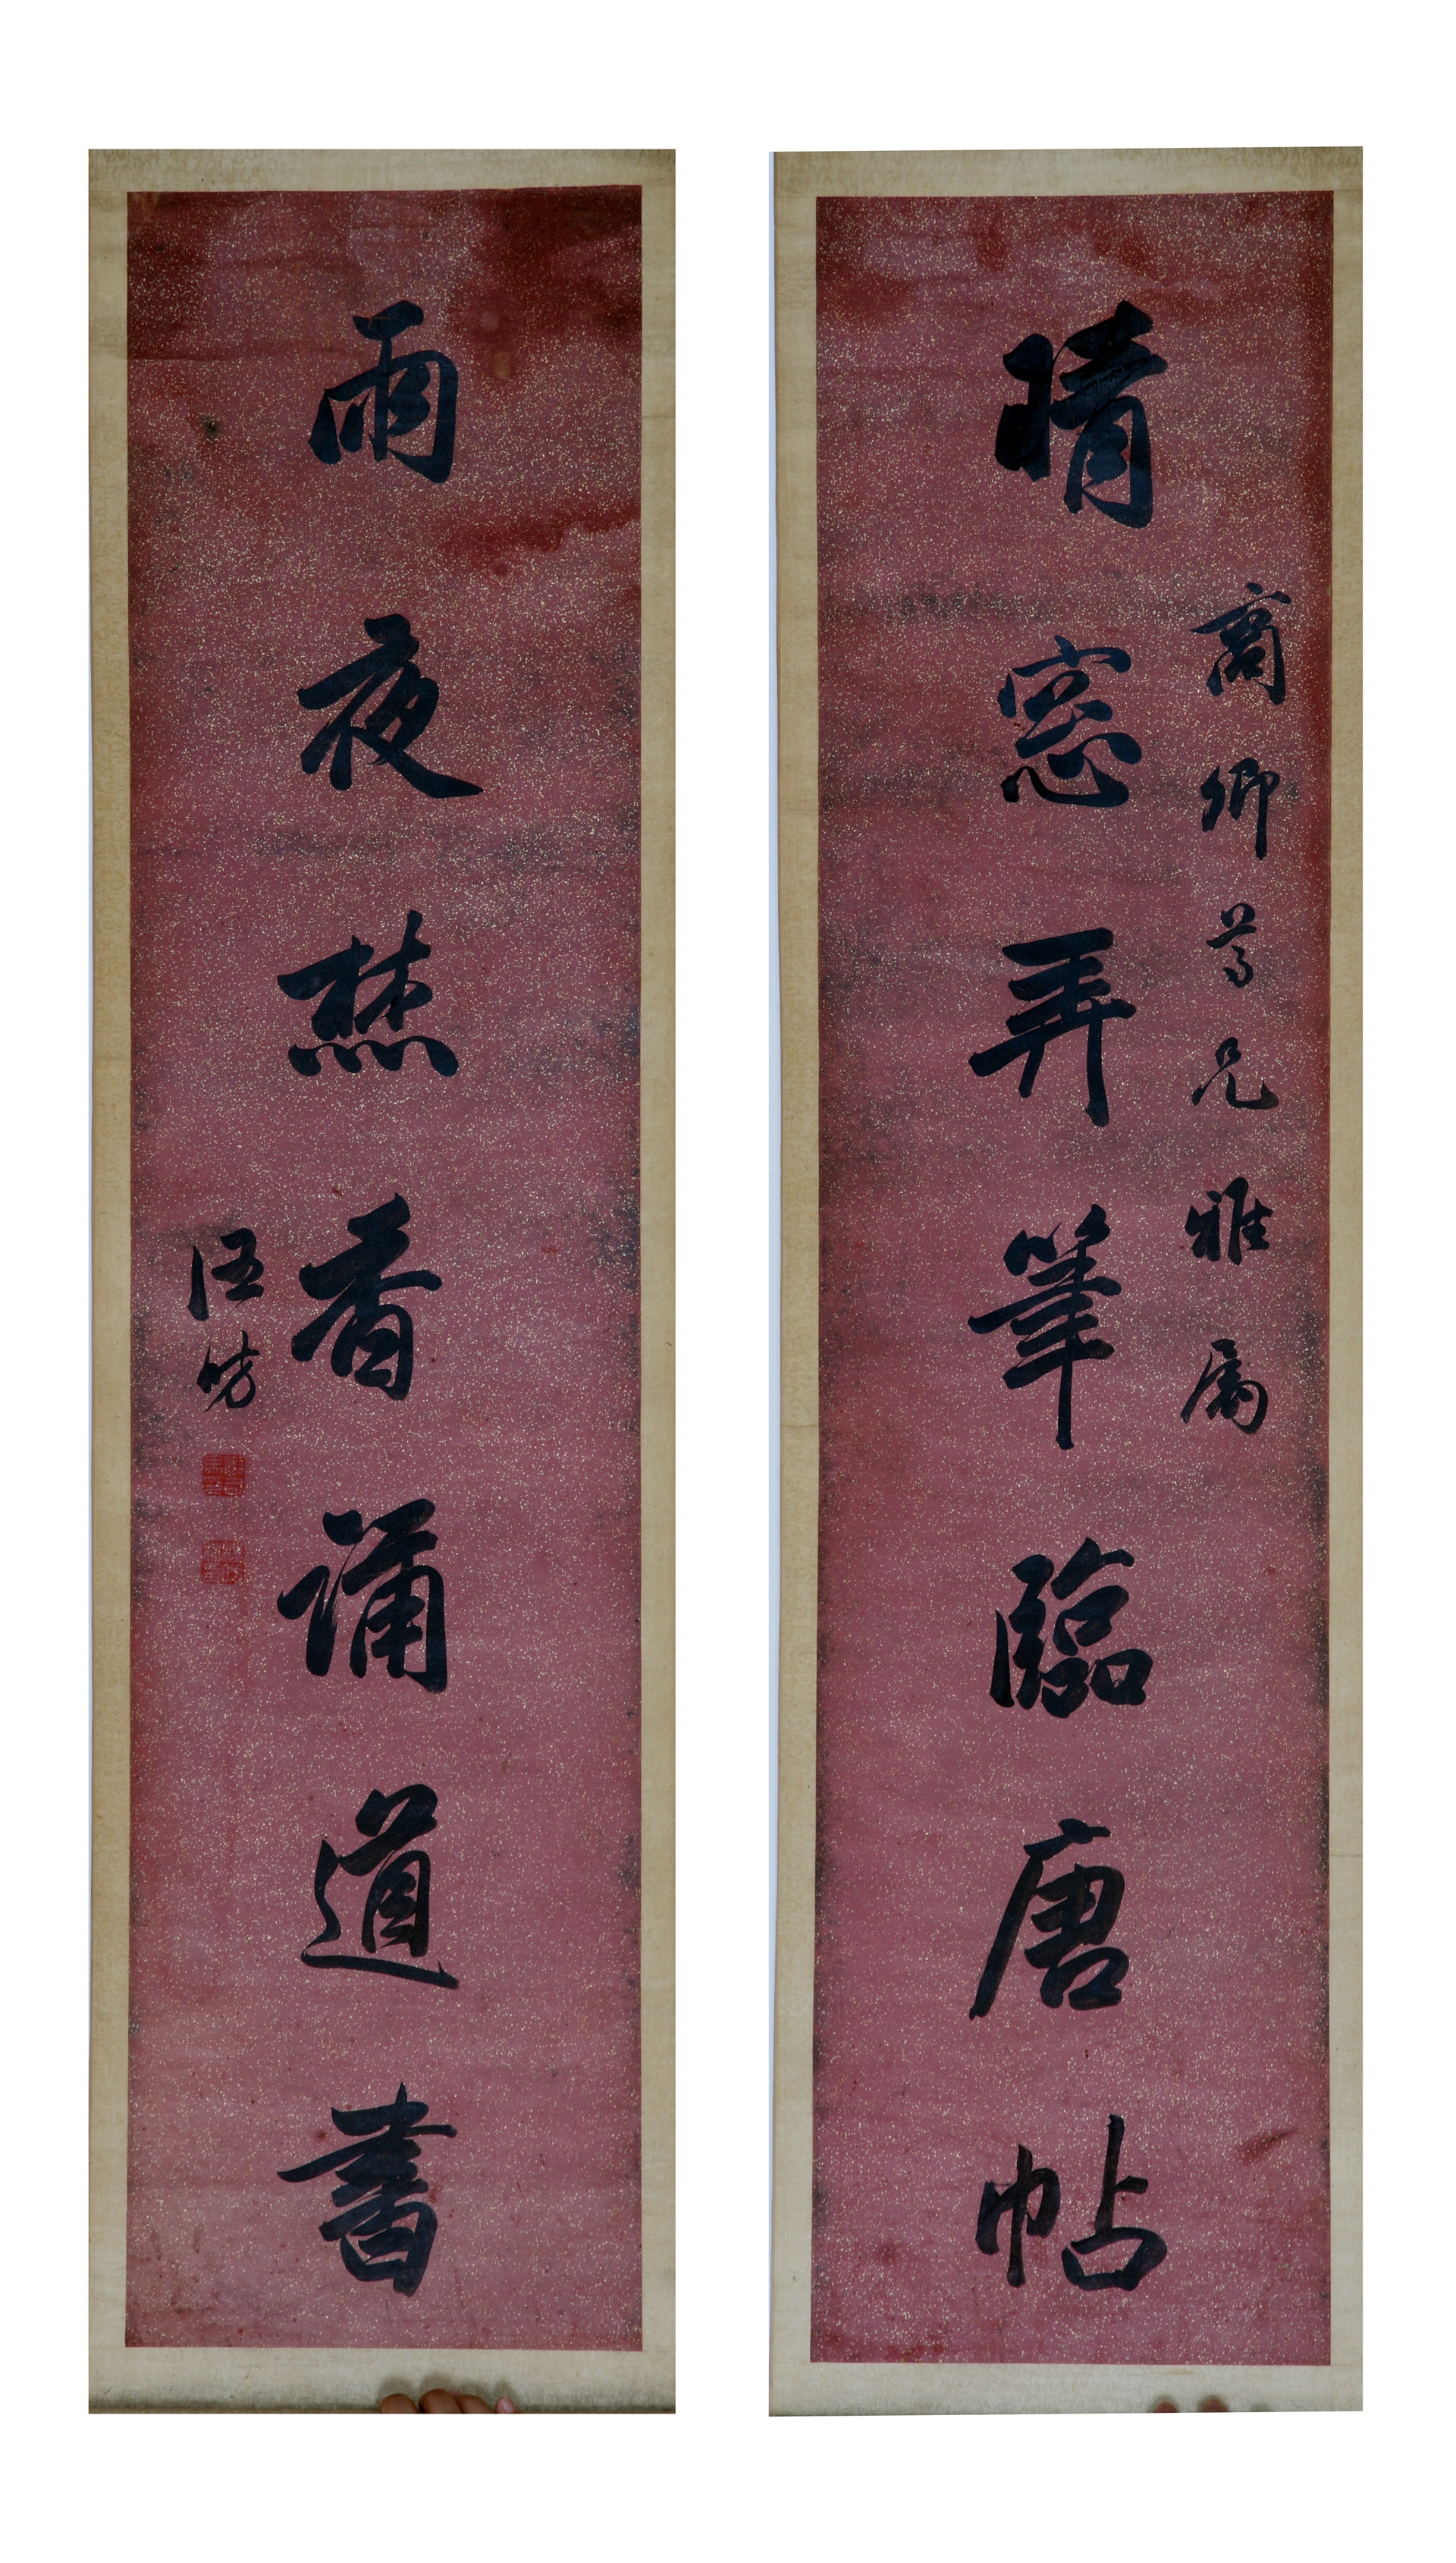 商卿尊兄雅属
晴窓弄筆臨唐帖
雨夜焚香誦道書